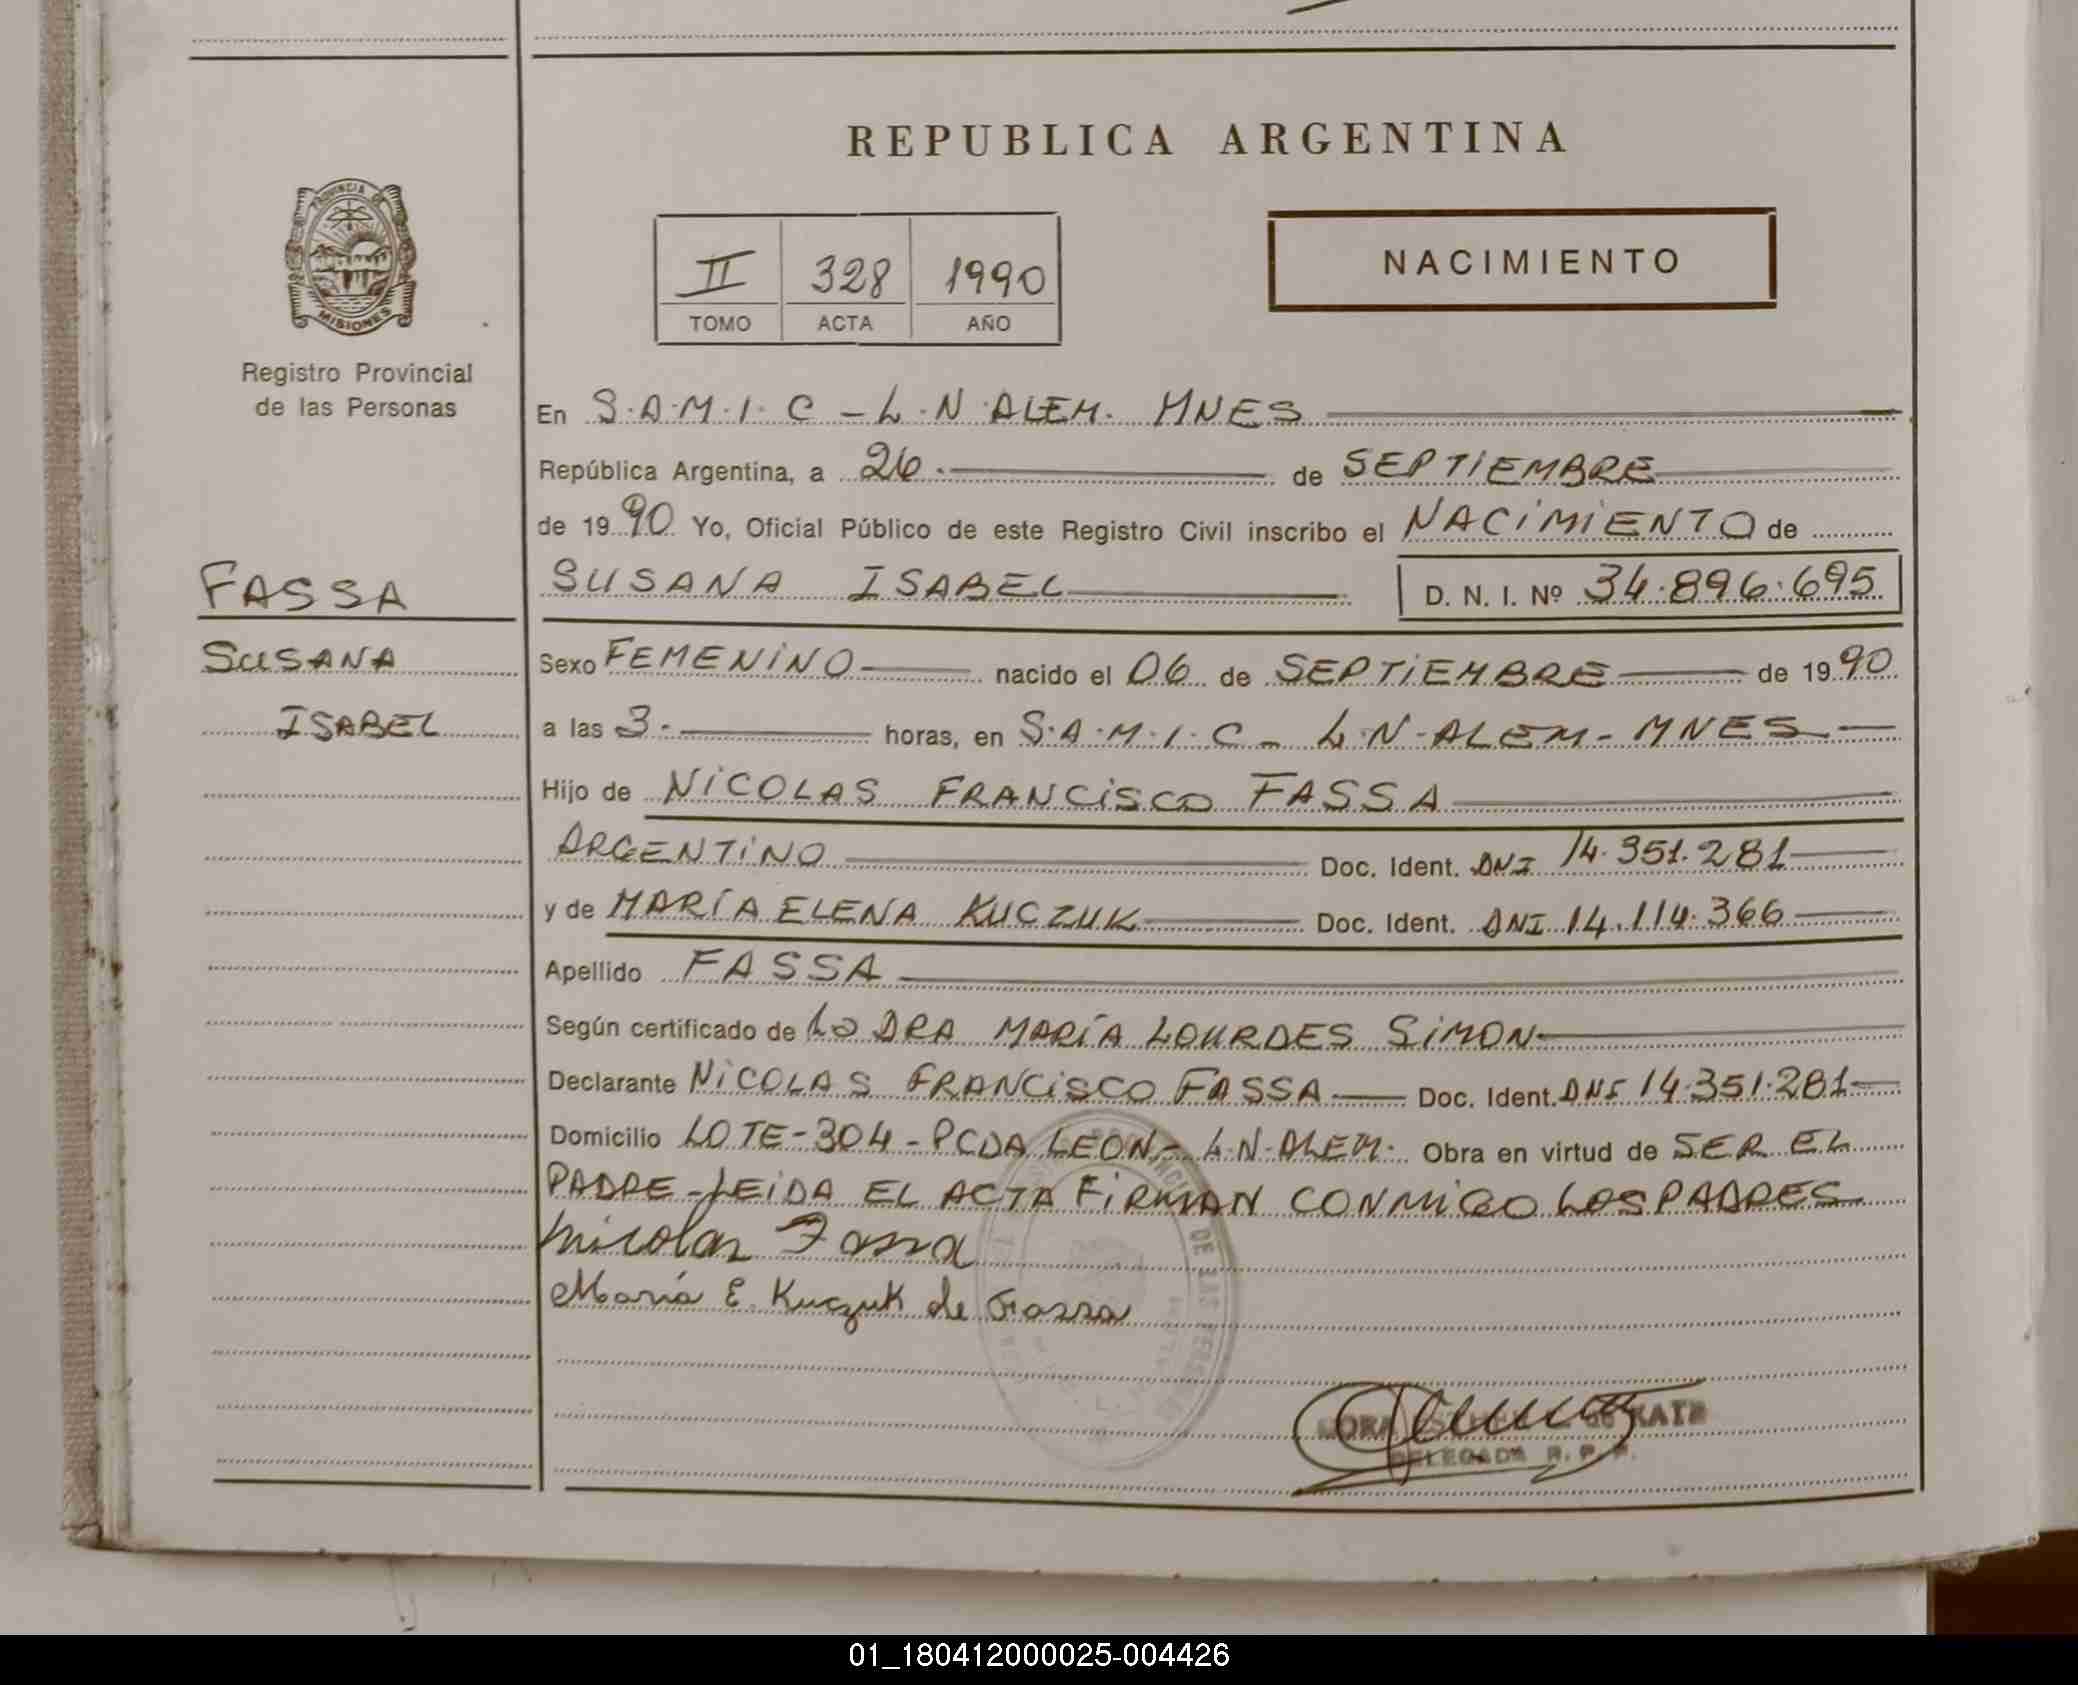 REPUBLICA ARGENTINA
PROVINCIA DE
MISIONES
Registro Provincial
de las Personas
II 328 1990
TOMO ACTA AÑO
NACIMIENTO
En S.A.M.I.C - L.N.ALEM. MNES
República Argentina, a 26. de SEPTIEMBRE
de 1990 Yo, Oficial Público de este Registro Civil inscribo el NACIMIENTO de
SUSANA ISABEL D. N. I. Nº 34.896.695
FASSA
SUSANA
ISABEL
Sexo FEMENINO nacido el 06 de SEPTIEMBRE de 1990
a las 3. horas, en S.A.M.I.C - L.N-ALEM - MNES
Hijo de NICOLAS FRANCISCO FASSA
ARGENTINO Doc. Ident. DNI 14.351.281
y de MARÍA ELENA KUCZUK Doc. Ident. DNI 14.114.366
Apellido FASSA
Según certificado de LA DRA MARÍA LOURDES SIMON
Declarante NICOLAS FRANCISCO FASSA Doc. Ident. DNI 14.351.281
Domicilio LOTE-304-PCDA LEON- L.N-ALEM. Obra en virtud de SER EL
PADRE-LEIDA EL ACTA FIRMAN CONMIGO LOS PADRES
Nicolas Fassa
María E. Kuczuk de Fassa
DELEGADA R. P. P.
01_180412000025-004426